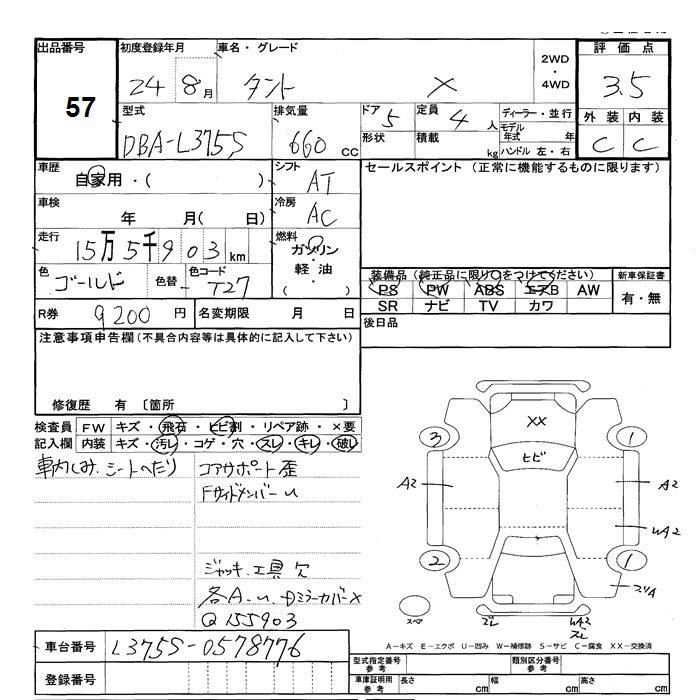 出品番号 57
初度登録年月 24 8月
車名・グレード タント X
2WD・4WD
評価点 3.5
外装 内装
C C
型式 DBA-L375S
排気量 660 cc
ドア 5
形状
定員 4 人
積載 kg
ディーラー・並行
モデル年式 年
ハンドル 左・右
車歴 自家用・( )
シフト AT
セールスポイント (正常に機能するものに限ります)
車検 年 月( 日)
冷房 AC
走行 15万5千903km
燃料 ガソリン 軽油・( )
色 ゴールド 色替
色コード T27
装備品 (純正品に限り○をつけてください)
PS PW ABS エアB AW
SR ナビ TV カワ
新車保証書 有・無
R券 9200円
名変期限 月 日
後日品
注意事項申告欄(不具合内容等は具体的に記入して下さい)
修復歴 有 〔箇所 〕
検査員記入欄
FW キズ・飛石・ヒビ割・リペア跡・×要
内装 キズ・汚レ・コゲ・穴・スレ・キレ・破レ
車内しみ、シートへたり
コアサポート歪
FサイドメンバーU
ジャッキ、工具欠
各A.U.DミラーカバーX
Q155903
XX
ヒビ
3
1
A2
A2
WA2
2
1
スリA
スペア
ズレ
WA2
ズレ
A-キズ E-エクボ U-凹み W-補修跡 S-サビ C-腐食 XX-交換済
車台番号 L375S-0578776
登録番号
型式指定番号 参考
類別区分番号 参考
車庫証明用 参考 長さ cm 幅 cm 高さ cm